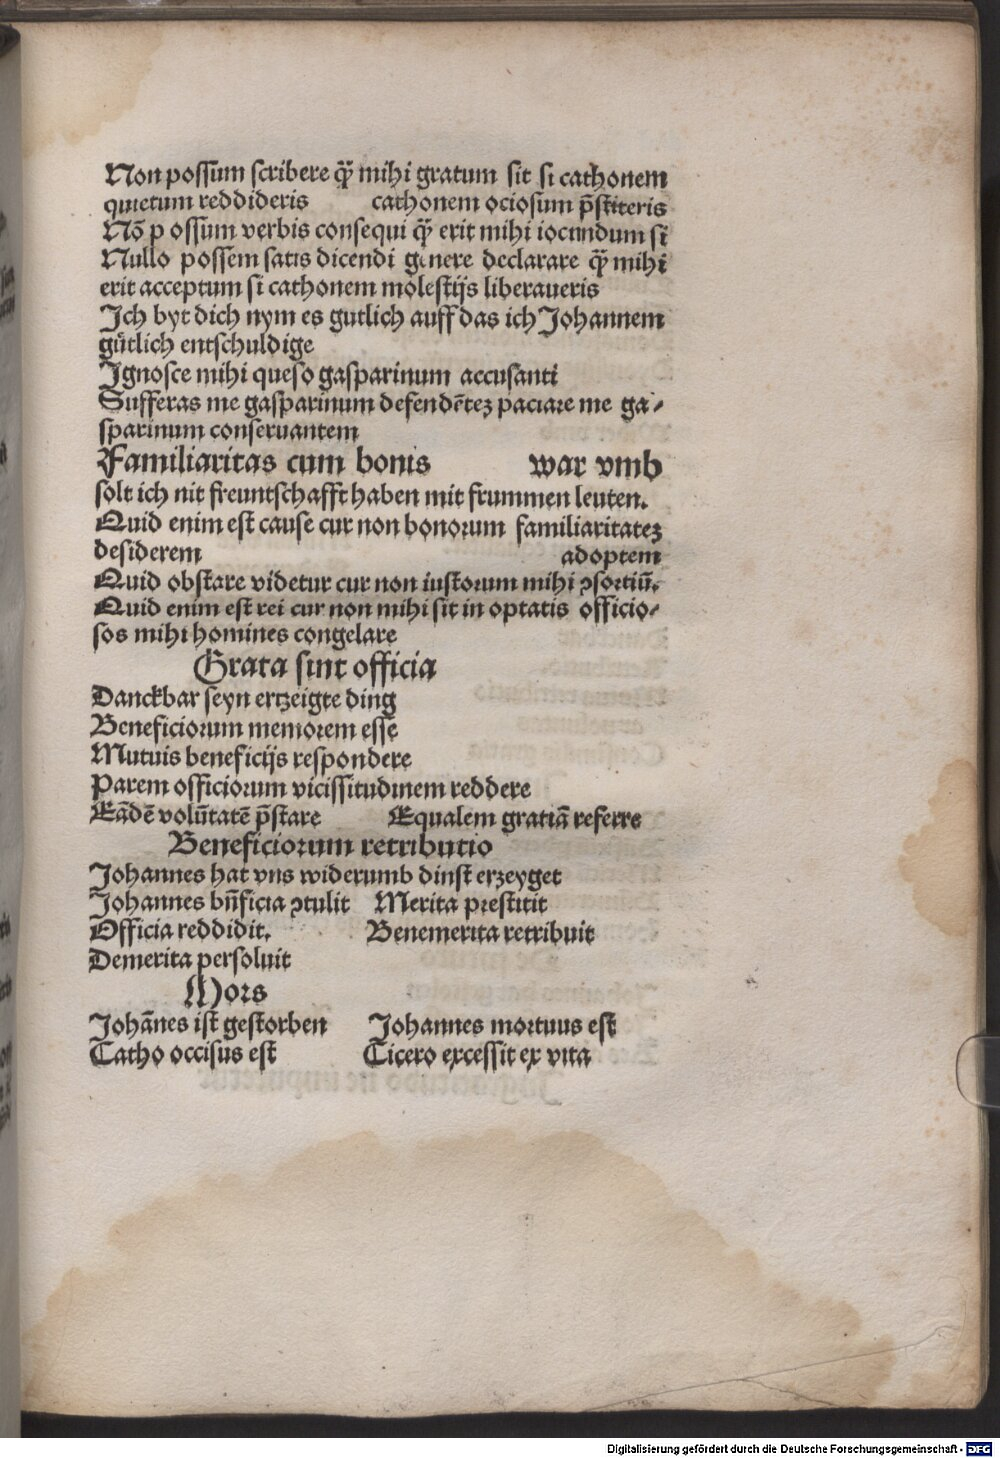 Non possum scribere qᷓ mihi gratum sit si cathonem
quietum reddideris cathonem ociosum p̄stiteris
Nō p ossum verbis consequi qᷓ erit mihi iocundum si
Nullo possem satis dicendi genere declarare qᷓ mihi
erit acceptum si cathonem molestijs liberaueris
Ich byt dich nym es gutlich auff das ich Johannem
gütlich entschuldige
Ignosce mihi queso gasparinum accusanti
Sufferas me gasparinum defendētez paciare me ga⸗
sparinum conseruantem
Familiaritas cum bonis war vmb
solt ich nit freuntschafft haben mit frummen leuten.
Quid enim est cause cur non bonorum familiaritatez
desiderem adoptem
Quid obstare videtur cur non iustorum mihi ꝯsortiū.
Quid enim est rei cur non mihi sit in optatis officio⸗
sos mihi homines congelare
Grata sint officia
Danckbar seyn ertzeigte ding
Beneficiorum memorem esse
Mutuis beneficijs respondere
Parem officiorum vicissitudinem reddere
Eādē volūtatē p̄stare Equalem gratiā referre
Beneficiorum retributio
Johannes hat vns widerumb dinst erzeyget
Johannes bn̄ficia ꝯtulit Merita prestitit
Officia reddidit. Benemerita retribuit
Demerita persoluit
Mors
Johānes ist gestorben Johannes mortuus est
Catho occisus est Cicero excessit ex vita
Digitalisierung gefördert durch die Deutsche Forschungsgemeinschaft - DFG